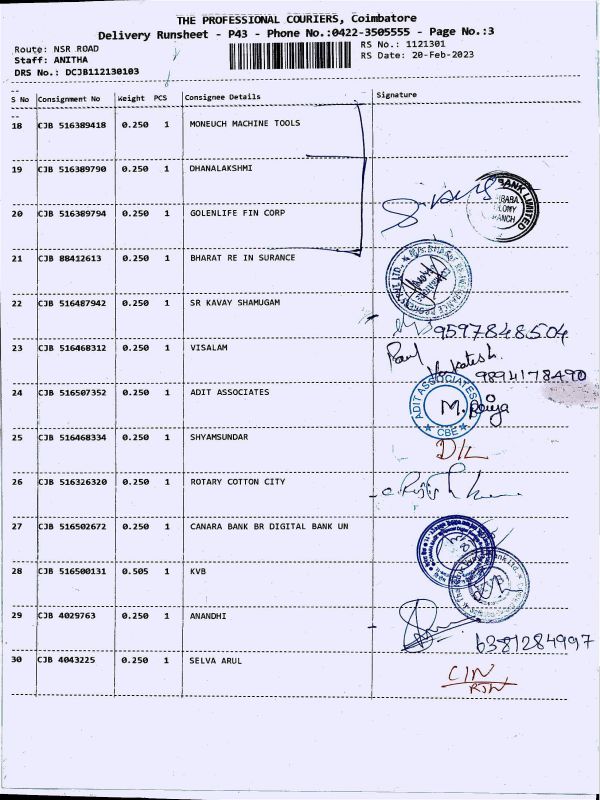 THE PROFESSIONAL COURIERS, Coimbatore
Delivery Runsheet - P43 - Phone No.:0422-3505555 - Page No.:3
Route: NSR ROAD
RS No.: 1121301
Staff: ANITHA
RS Date: 20-Feb-2023
DRS No.: DCJB112130103
S No Consignment No Weight PCS Consignee Details Signature
18 CJB 516389418 0.250 1 MONEUCH MACHINE TOOLS
19 CJB 516389790 0.250 1 DHANALAKSHMI
BANK LIMITED
20 CJB 516389794 0.250 1 GOLENLIFE FIN CORP
21 CJB 88412613 0.250 1 BHARAT RE IN SURANCE
22 CJB 516487942 0.250 1 SR KAVAY SHAMUGAM
9597848504
23 CJB 516468312 0.250 1 VISALAM
Venkatesh.
9894178490
24 CJB 516507352 0.250 1 ADIT ASSOCIATES
ADIT ASSOCIATES
M. Priya
CBE
25 CJB 516468334 0.250 1 SHYAMSUNDAR
D/L
26 CJB 516326320 0.250 1 ROTARY COTTON CITY
27 CJB 516502672 0.250 1 CANARA BANK BR DIGITAL BANK UN
28 CJB 516500131 0.505 1 KVB
29 CJB 4029763 0.250 1 ANANDHI
6381284997
30 CJB 4043225 0.250 1 SELVA ARUL